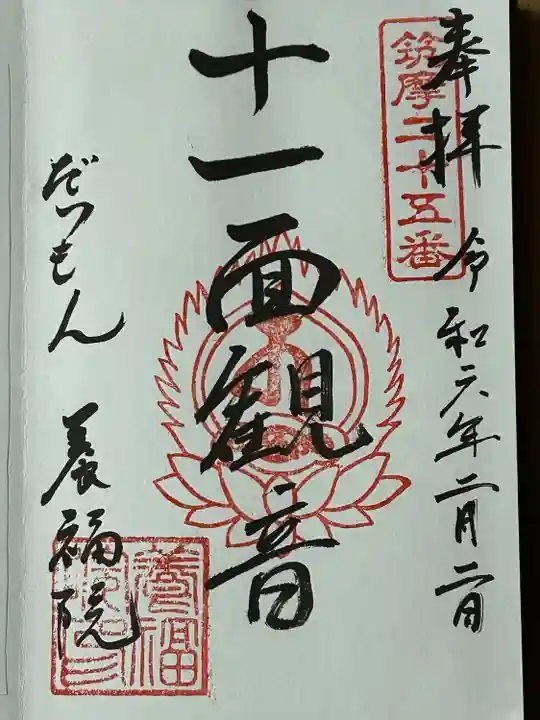 奉拝 令和六年二月二日
筑摩二十五番
十一面観音
だつもん 養福院